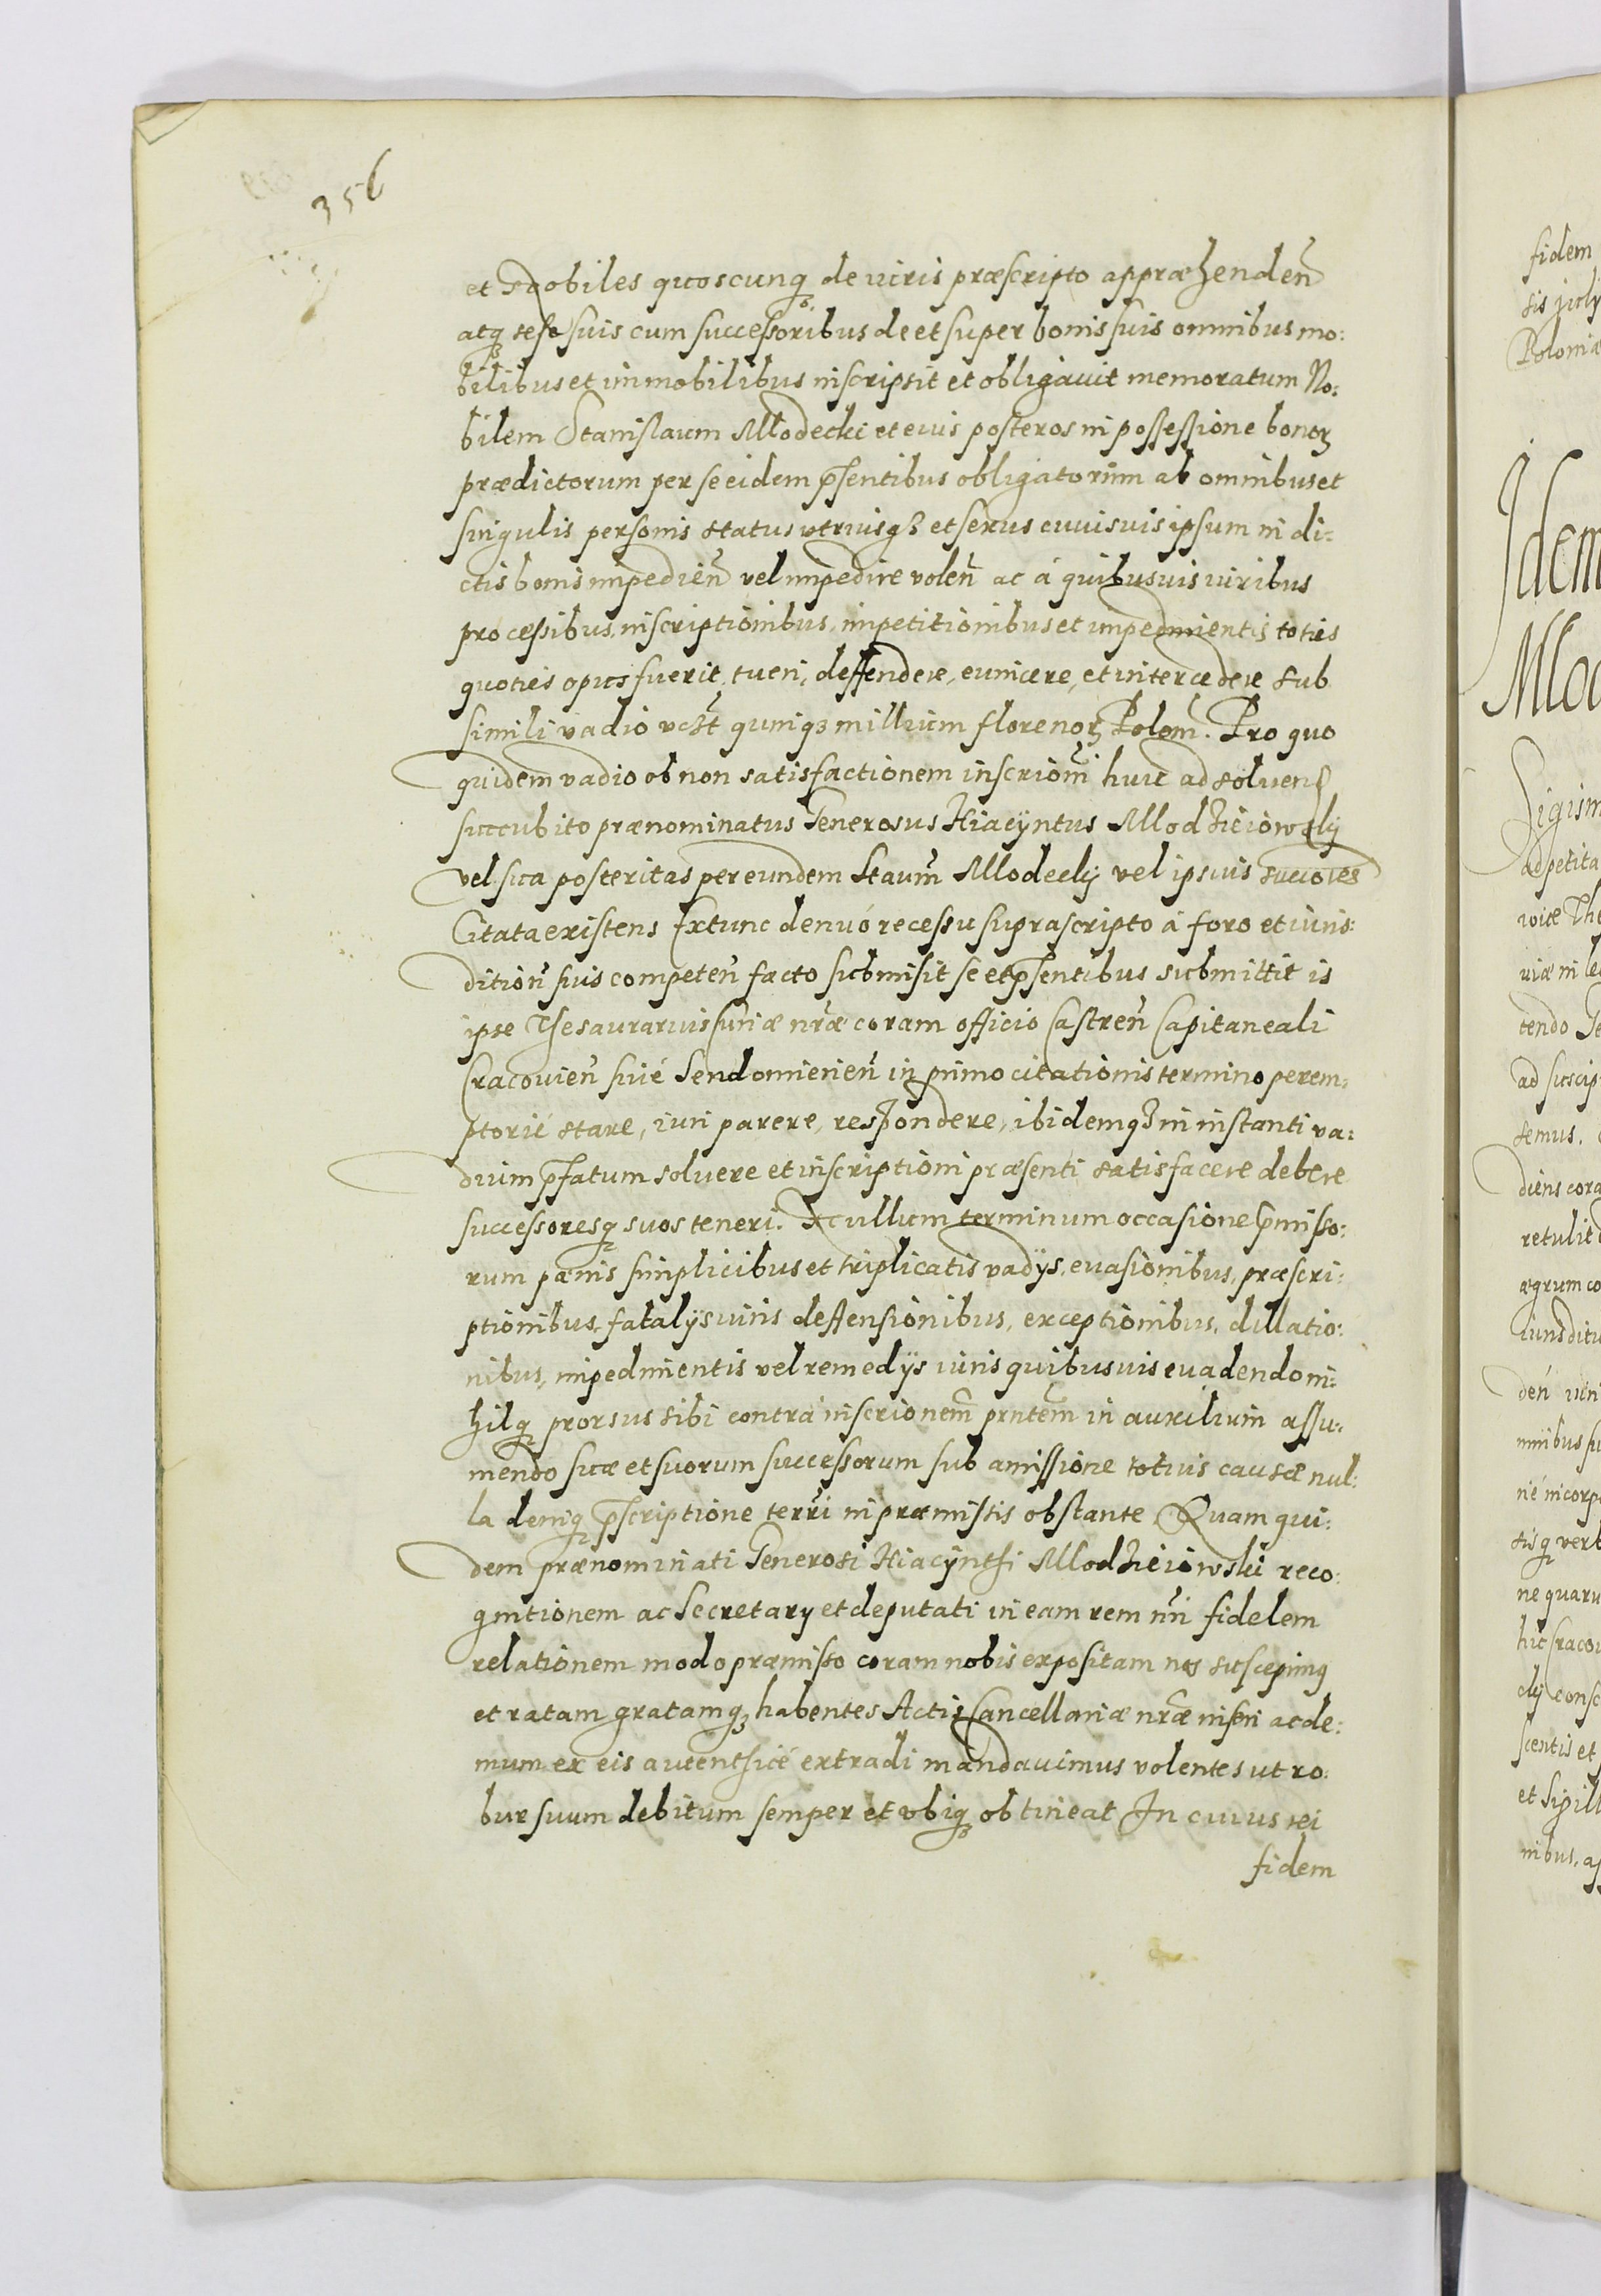 356
et Nobiles quoscunq₃ de iuris præscripto appræhenden̄
atq₃ sese suis cum successoribus de et super bonis suis omnibus mo:
bilibus et immobilibus inscripsit et obligauit memoratum No:
bilem Stanislaum Młodecki et eius posteros in possessione bonoꝝ
prædictorum per se eidem p̄sentibus obligatorum ab omnibus et
singulis personis status vtriusq₃ et sexus cuiusuis ipsum in di:
ctis bonis impedien̄ vel impedire volen̄ ac á quibusuis iuribus
processibus, inscriptionibus, impetitionibus et impedimentis toties
quoties opus fuerit, tueri, deffendere, euincere, et intercedere sub
simili vadio vc3t quinq₃ millium florenoꝝ Polon̄. Pro quo
quidem vadio ob non satisfactionem inscrioni̅ huic ad soluend
succubito prænominatus Generosus Hiacÿntus Młodzieiowskÿ
vel sua posteritas per eundem Staum̄ Młodeckÿ vel ipsius succores
Citata existens Extunc denuó recessu suprascripto á foro et iuris:
dition̄ suis competen̄ facto submisit se et p̄sentibus submittit is
ipse Thesaurarius Curiæ nr̄æ coram officio Castren̄ Capitaneali
Cracouien̄ siué Sendomirien̄ in primo citationis termino perem:
ptorié stare, iuri parere, respondere, ibidemq₃ in instanti va:
dium p̄fatum soluere et inscriptioni præsenti satisfacere debere
successoresq₃ suos teneri. Nullum terminum occasione p̄misso:
rum pænis simplicibus et triplicatis vadÿs, euasionibus, præscri:
ptionibus, fatalÿs iuris deffensionibus, exceptionibus, dillatio:
nibus, impedimentis vel remedÿs iuris quibusuis euadendo ni:
hilq₃ prorsus sibi contra inscrionem̄ prntem̄ in auxilium assu:
mendo suæ et suorum successorum sub amissione totius causæ nul:
la deniq₃ p̄scriptione terri̅ in præmissis obstante Quam qui:
dem prænominati Generosi Hiacÿnthi Młodzieiowski reco:
gnitionem ac Secretary et deputati in eam rem nr̄i fidelem
relationem modo præmisso coram nobis expositam nos suscepimꝰ
et ratam gratamq₃ habentes Actis Cancellariæ nr̄æ inseri ac de:
mum ex eis autenthicé extradi mandauimus volentes ut ro:
bur suum debitum semper et vbiq₃ obtineat In cuius rei
fidem
fidem
Polonia
Idem